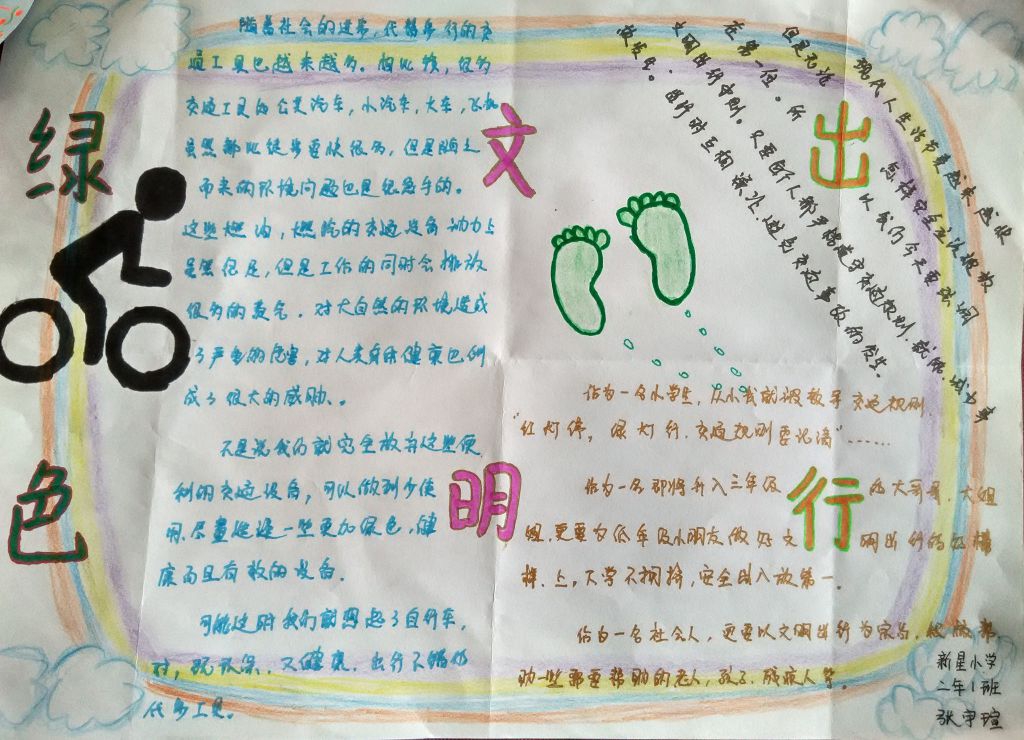 绿色
文明
出行
随着社会的进步，代替步行的交
通工具也越来越多。相比较，做为
交通工具的公共汽车，小汽车，火车，飞机
虽然都比徒步要快很多，但是随之
而来的环境问题也是很急手的。
这些燃油，燃气的交通设备动力上
虽然很足，但是工作的同时会排放
很多的废气．对大自然的环境造成
了严重的危害，对人类身体健康也构
成了很大的威胁、。
不是说我们就完全放弃这些便
利的交通设备，可以做到少使
用．尽量选择一些更加绿色，健
康而且有效的设备．
可能这时我们就想起了自行车，
对，既环保．又健康．出行不错的
代步工具。
现代人生活节奏越来越快
但是无论
怎样安全应该被放
在第一位。所
以我们今天要强调
文明出行守则。只要每个人都严格遵守交通规则．就能减少事
故发生．
出行时互相谦让．避免交通事故的发生。
作为一名小学生，从小我就被教导交通规则．
"红灯停，绿灯行．交通规则要记清"……
作为一名即将升入三年级的大哥哥．大姐
姐．更要为低年级小朋友做好文明出行的好榜
样．上，下学不拥挤，安全出入放第一．
作为一名社会人，更要以文明出行为宗旨．做做帮
助一些需要帮助的老人，孩子．残疾人等。
新星小学
二年1班
张宇瑄